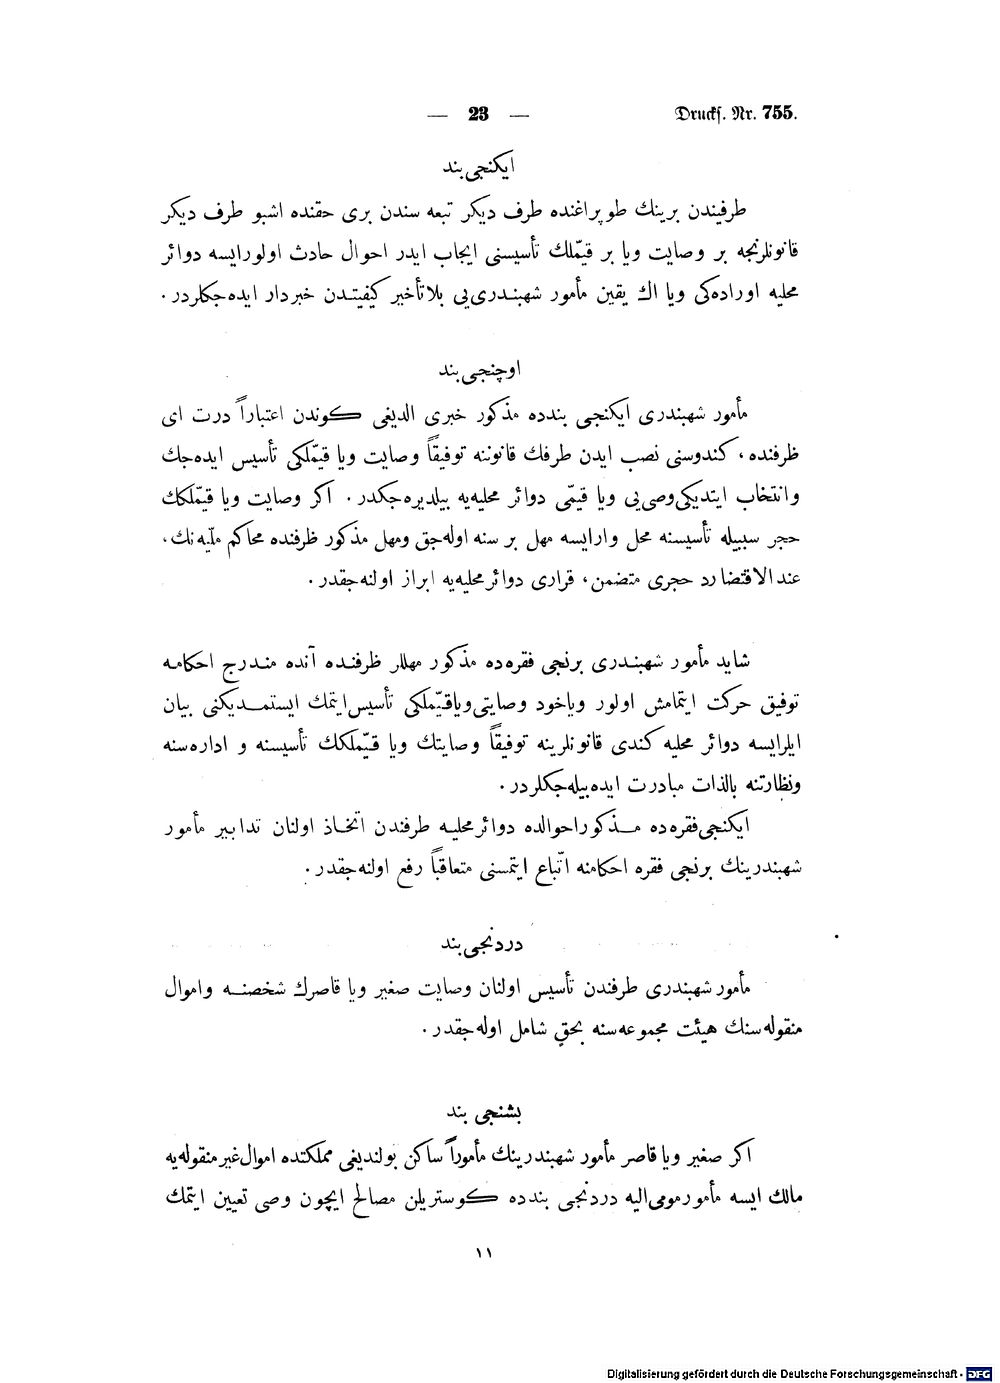 — 23 —
Drucks. Nr. 755.
ایكنجی بند
طرفیندن برینك طوپراغنده طرف دیكر تبعه سندن بری حقنده اشبو طرف دیكر
قانونلرنجه بر وصایت ویا بر قیّملك تأسیسنی ایجاب ایدر احوال حادث اولورایسه دوائر
محلیه اوراده‌كی ویا اك یقین مأمور شهبندری‌یی بلاتأخیر كیفیتدن خبردار ایده‌جكلردر.
اوچنجی بند
مأمور شهبندری ایكنجی بندده مذكور خبری الدیغی كوندن اعتباراً درت ای
ظرفنده، كندوسنی نصب ایدن طرفك قانوننه توفیقاً وصایت ویا قیّملكی تأسیس ایده‌جك
وانتخاب ایتدیكی وصی‌یی ویا قیمّی دوائر محلیه‌یه بیلدیره‌جكدر. اكر وصایت ویا قیّملكك
حجر سببیله تأسیسنه محل وارایسه مهل بر سنه اوله‌جق ومهل مذكور ظرفنده محاكم ملّیه‌نك،
عند الاقتضا رد حجری متضمن، قراری دوائر محلیه‌یه ابراز اولنه‌جقدر.
شاید مأمور شهبندری برنجی فقره‌ده مذكور مهللر ظرفنده آنده مندرج احكامه
توفیق حركت ایتمامش اولور ویاخود وصایتی ویاقیّملكی تأسیس ایتمك ایستمدیكنی بیان
ایلرایسه دوائر محلیه كندی قانونلرینه توفیقاً وصایتك ویا قیّملكك تأسیسنه و اداره‌سنه
ونظارتنه بالذات مبادرت ایده‌بیله‌جكلردر.
ایكنجی فقره‌ده مذكور احوالده دوائر محلیه طرفندن اتخاذ اولنان تدابیر مأمور
شهبندرینك برنجی فقره احكامنه اتّباع ایتمسنی متعاقباً رفع اولنه‌جقدر.
دردنجی بند
مأمور شهبندری طرفندن تأسیس اولنان وصایت صغیر ویا قاصرك شخصنه واموال
منقوله‌سنك هیئت مجموعه‌سنه بحقٍ شامل اوله‌جقدر.
بشنجی بند
اكر صغیر ویا قاصر مأمور شهبندرینك مأموراً ساكن بولندیغی مملكتده اموال غیر منقوله‌یه
مالك ایسه مأمور مومی الیه دردنجی بندده كوستریلن مصالح ایچون وصی تعیین ایتمك
١١
Digitalisierung gefördert durch die Deutsche Forschungsgemeinschaft - DFG